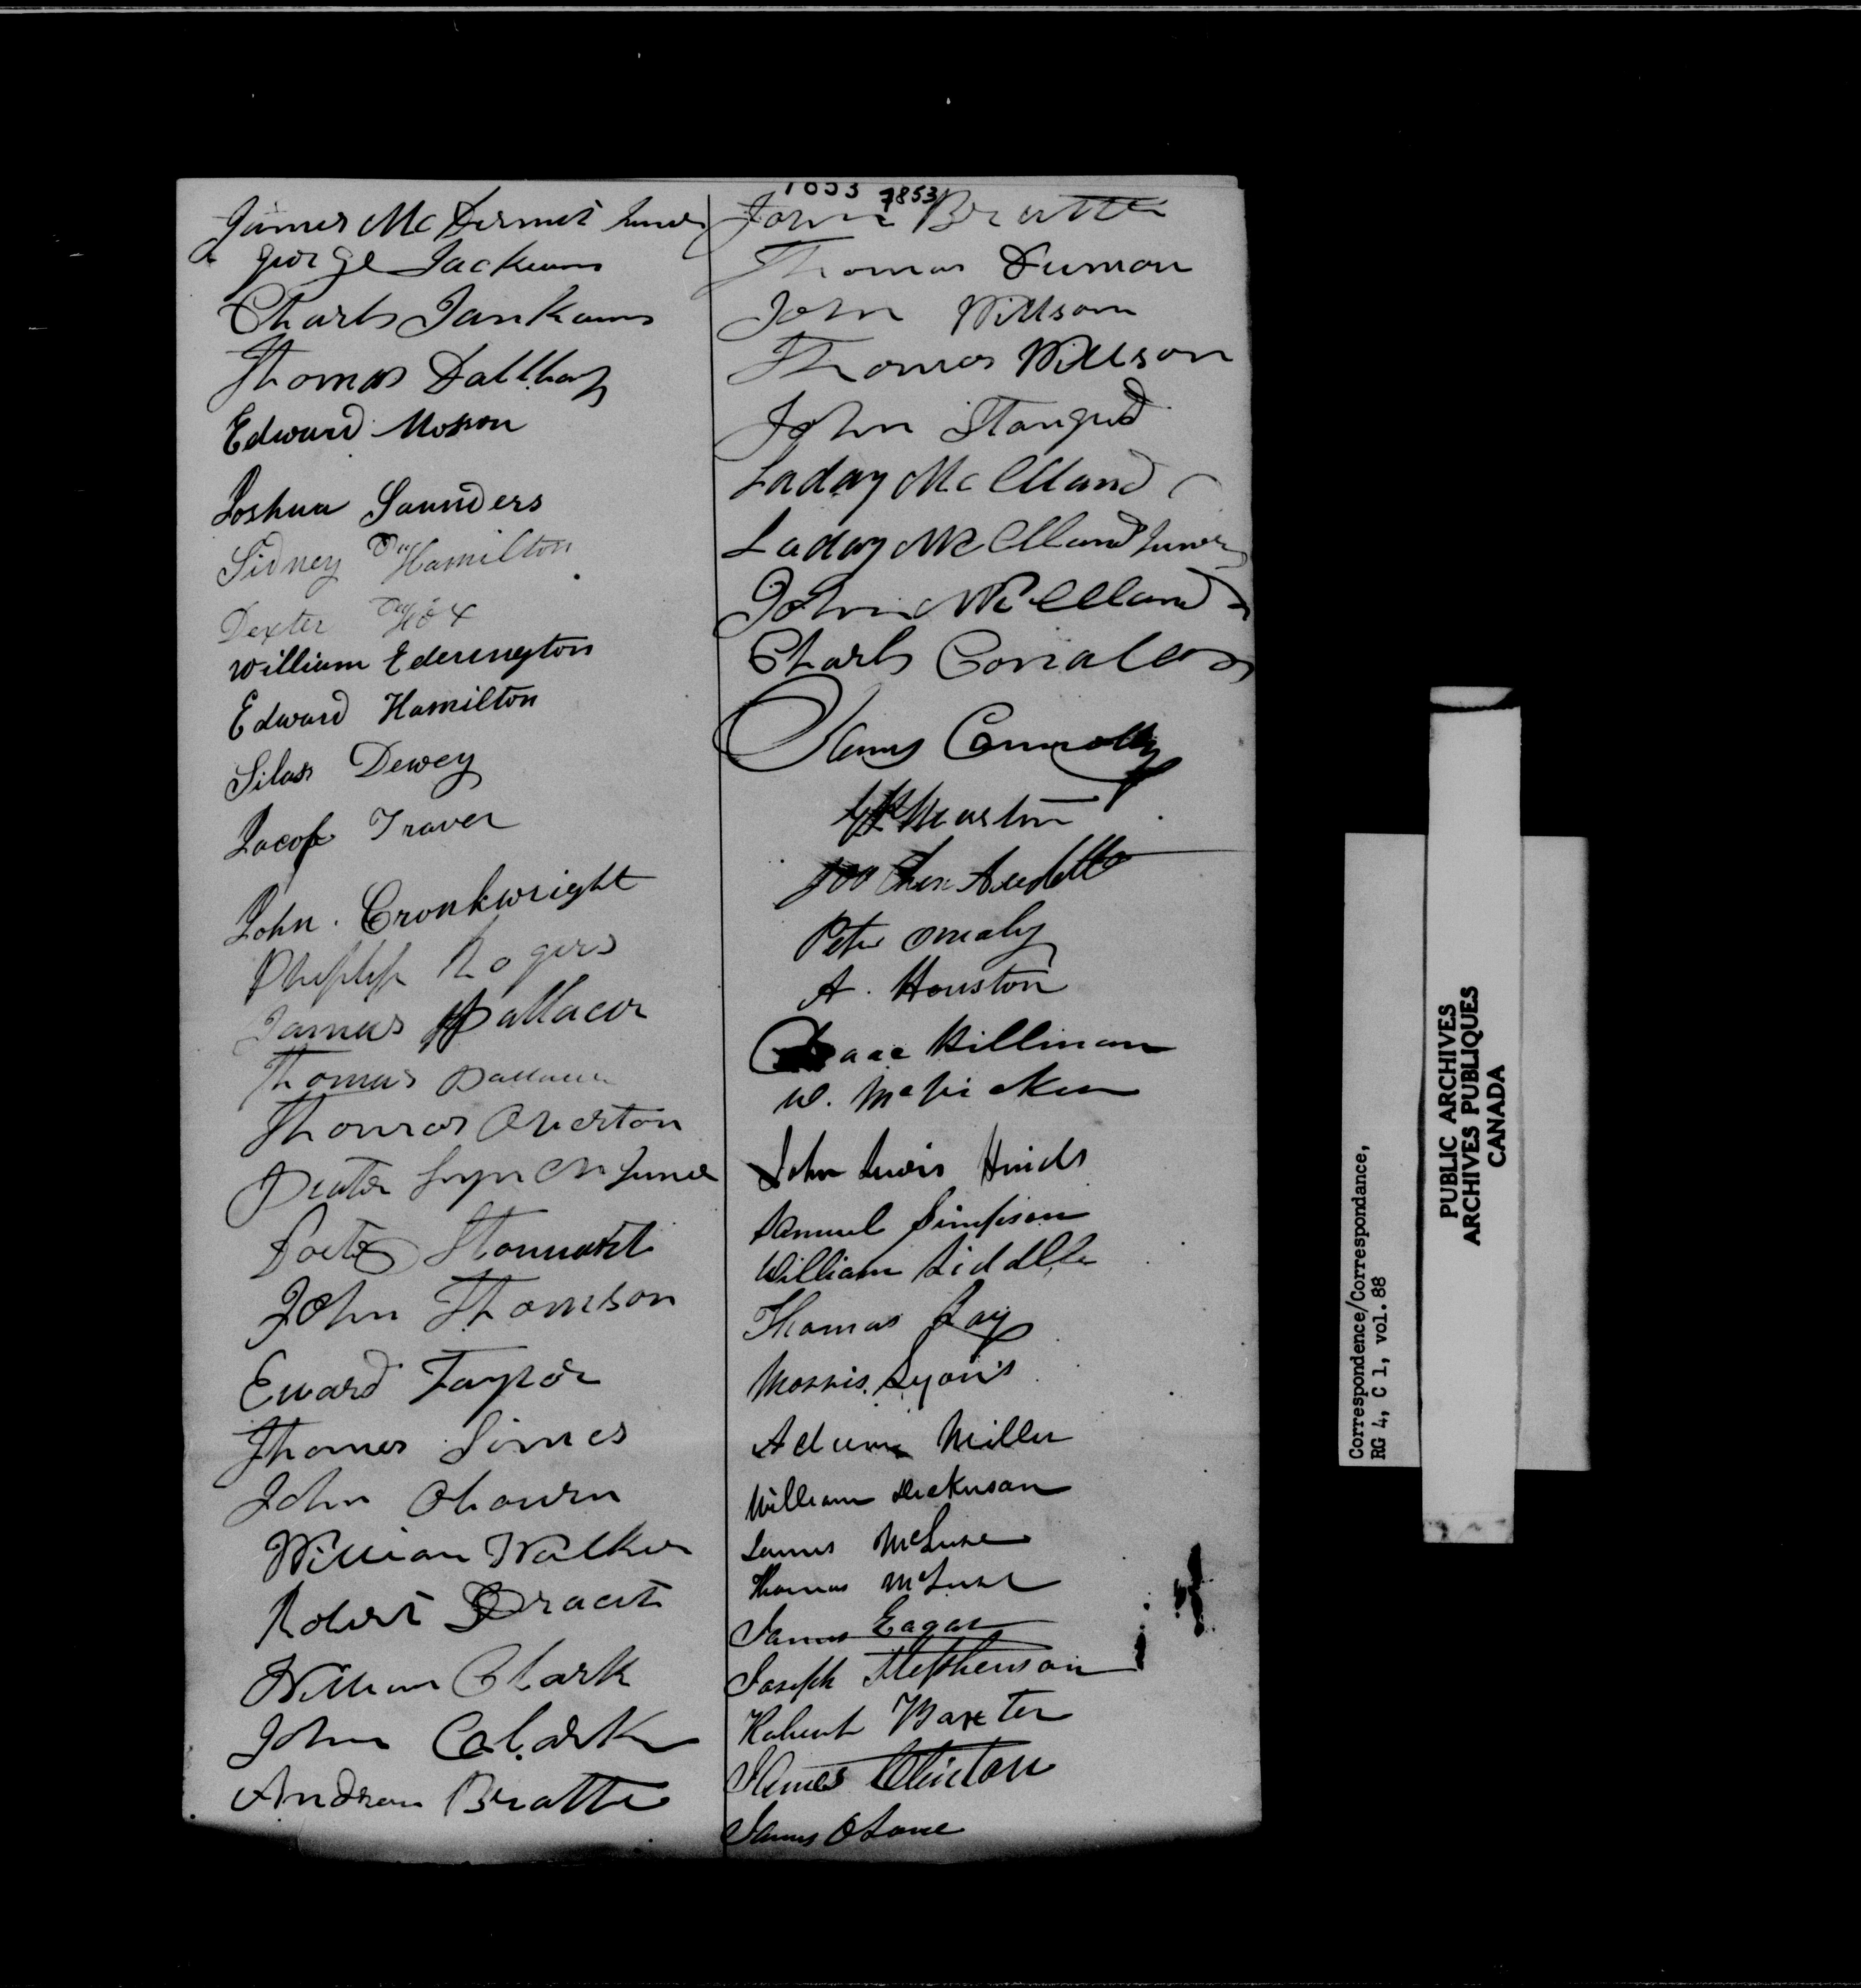 1853 7853
James McDermit Juner
George Jackeons
Charls Jankams
Thomas Dallhay
Edward Mosson
Joshua Saunders
Sidney Hamilton
Dexter
William Ederington
Edward Hamilton
Silas Dewey
Jacob Traver
John Cronkwright
Phiplip Rogers
James Wallacer
Thomas
Thomas Overton
Juner
Stounart
John Thomson
Eward Taylor
Thomas Simes
John Ohouen
William Walker
Robert
William Clark
John Calark
Andrew Bratte
John Bratte
Thomas Dumon
John Willsom
Thomas Willson
John Stangud
Laday McClland
Laday McClland Juner
John McClland
Charls
James Connolly
Peter Omealy
A. Houston
Isaac Killinan
W. McVicken
John Lewis Hinds
Samuel Simpson
William Liddlle
Thomas Ray
Morris Lyons
Adum Miller
William Dickinson
James McLuse
Thomas McLuse
James Eagar
Joseph Stephenson
Robert Baxter
James Clinton
James O Lone
Correspondence/Correspondance,
RG 4, C 1, vol.88
PUBLIC ARCHIVES
ARCHIVES PUBLIQUES
CANADA